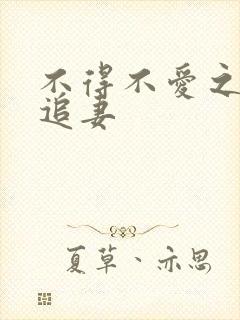 不得不愛之
追妻
夏草、亦思